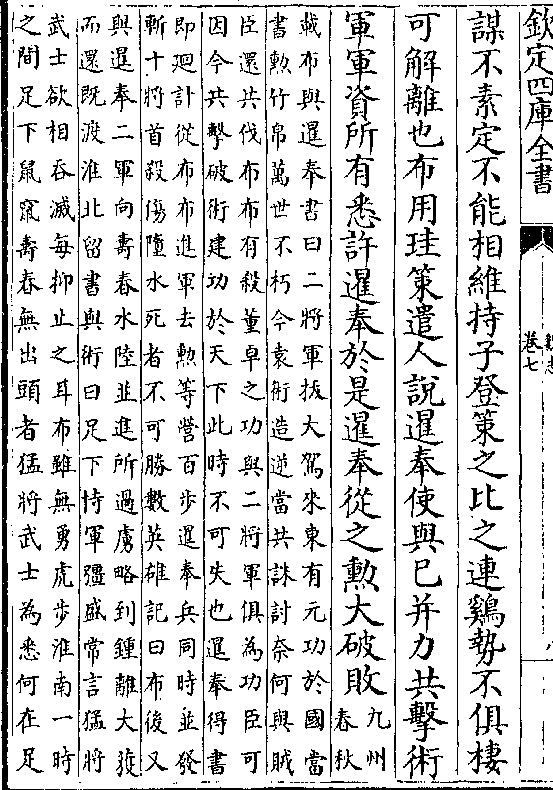 欽定四庫全書
卷七
謀不素定不能相維持子登策之比之連鷄勢不俱棲
可解離也布用珪策遣人說暹奉使與已并力共擊術
軍軍資所有悉許暹奉於是暹奉從之勲大破敗
九州
春秋
載布與暹奉書曰二將軍拔大駕來東有元功於國當
書勲竹帛萬世不朽今袁術造逆當共誅討奈何與賊
臣還共伐布布有殺董卓之功與二將軍俱為功臣可
因今共擊破術建功於天下此時不可失也暹奉得書
即廻計從布布進軍去勲等營百步暹奉兵同時並發
斬十將首殺傷墮水死者不可勝數英雄記曰布後又
與暹奉二軍向壽春水陸並進所過虜略到鍾離大獲
而還既渡淮北留書與術曰足下恃軍彊盛常言猛將
武士欲相吞滅每抑止之耳布雖無勇虎步淮南一時
之間足下鼠竄壽春無出頭者猛將武士為悉何在足